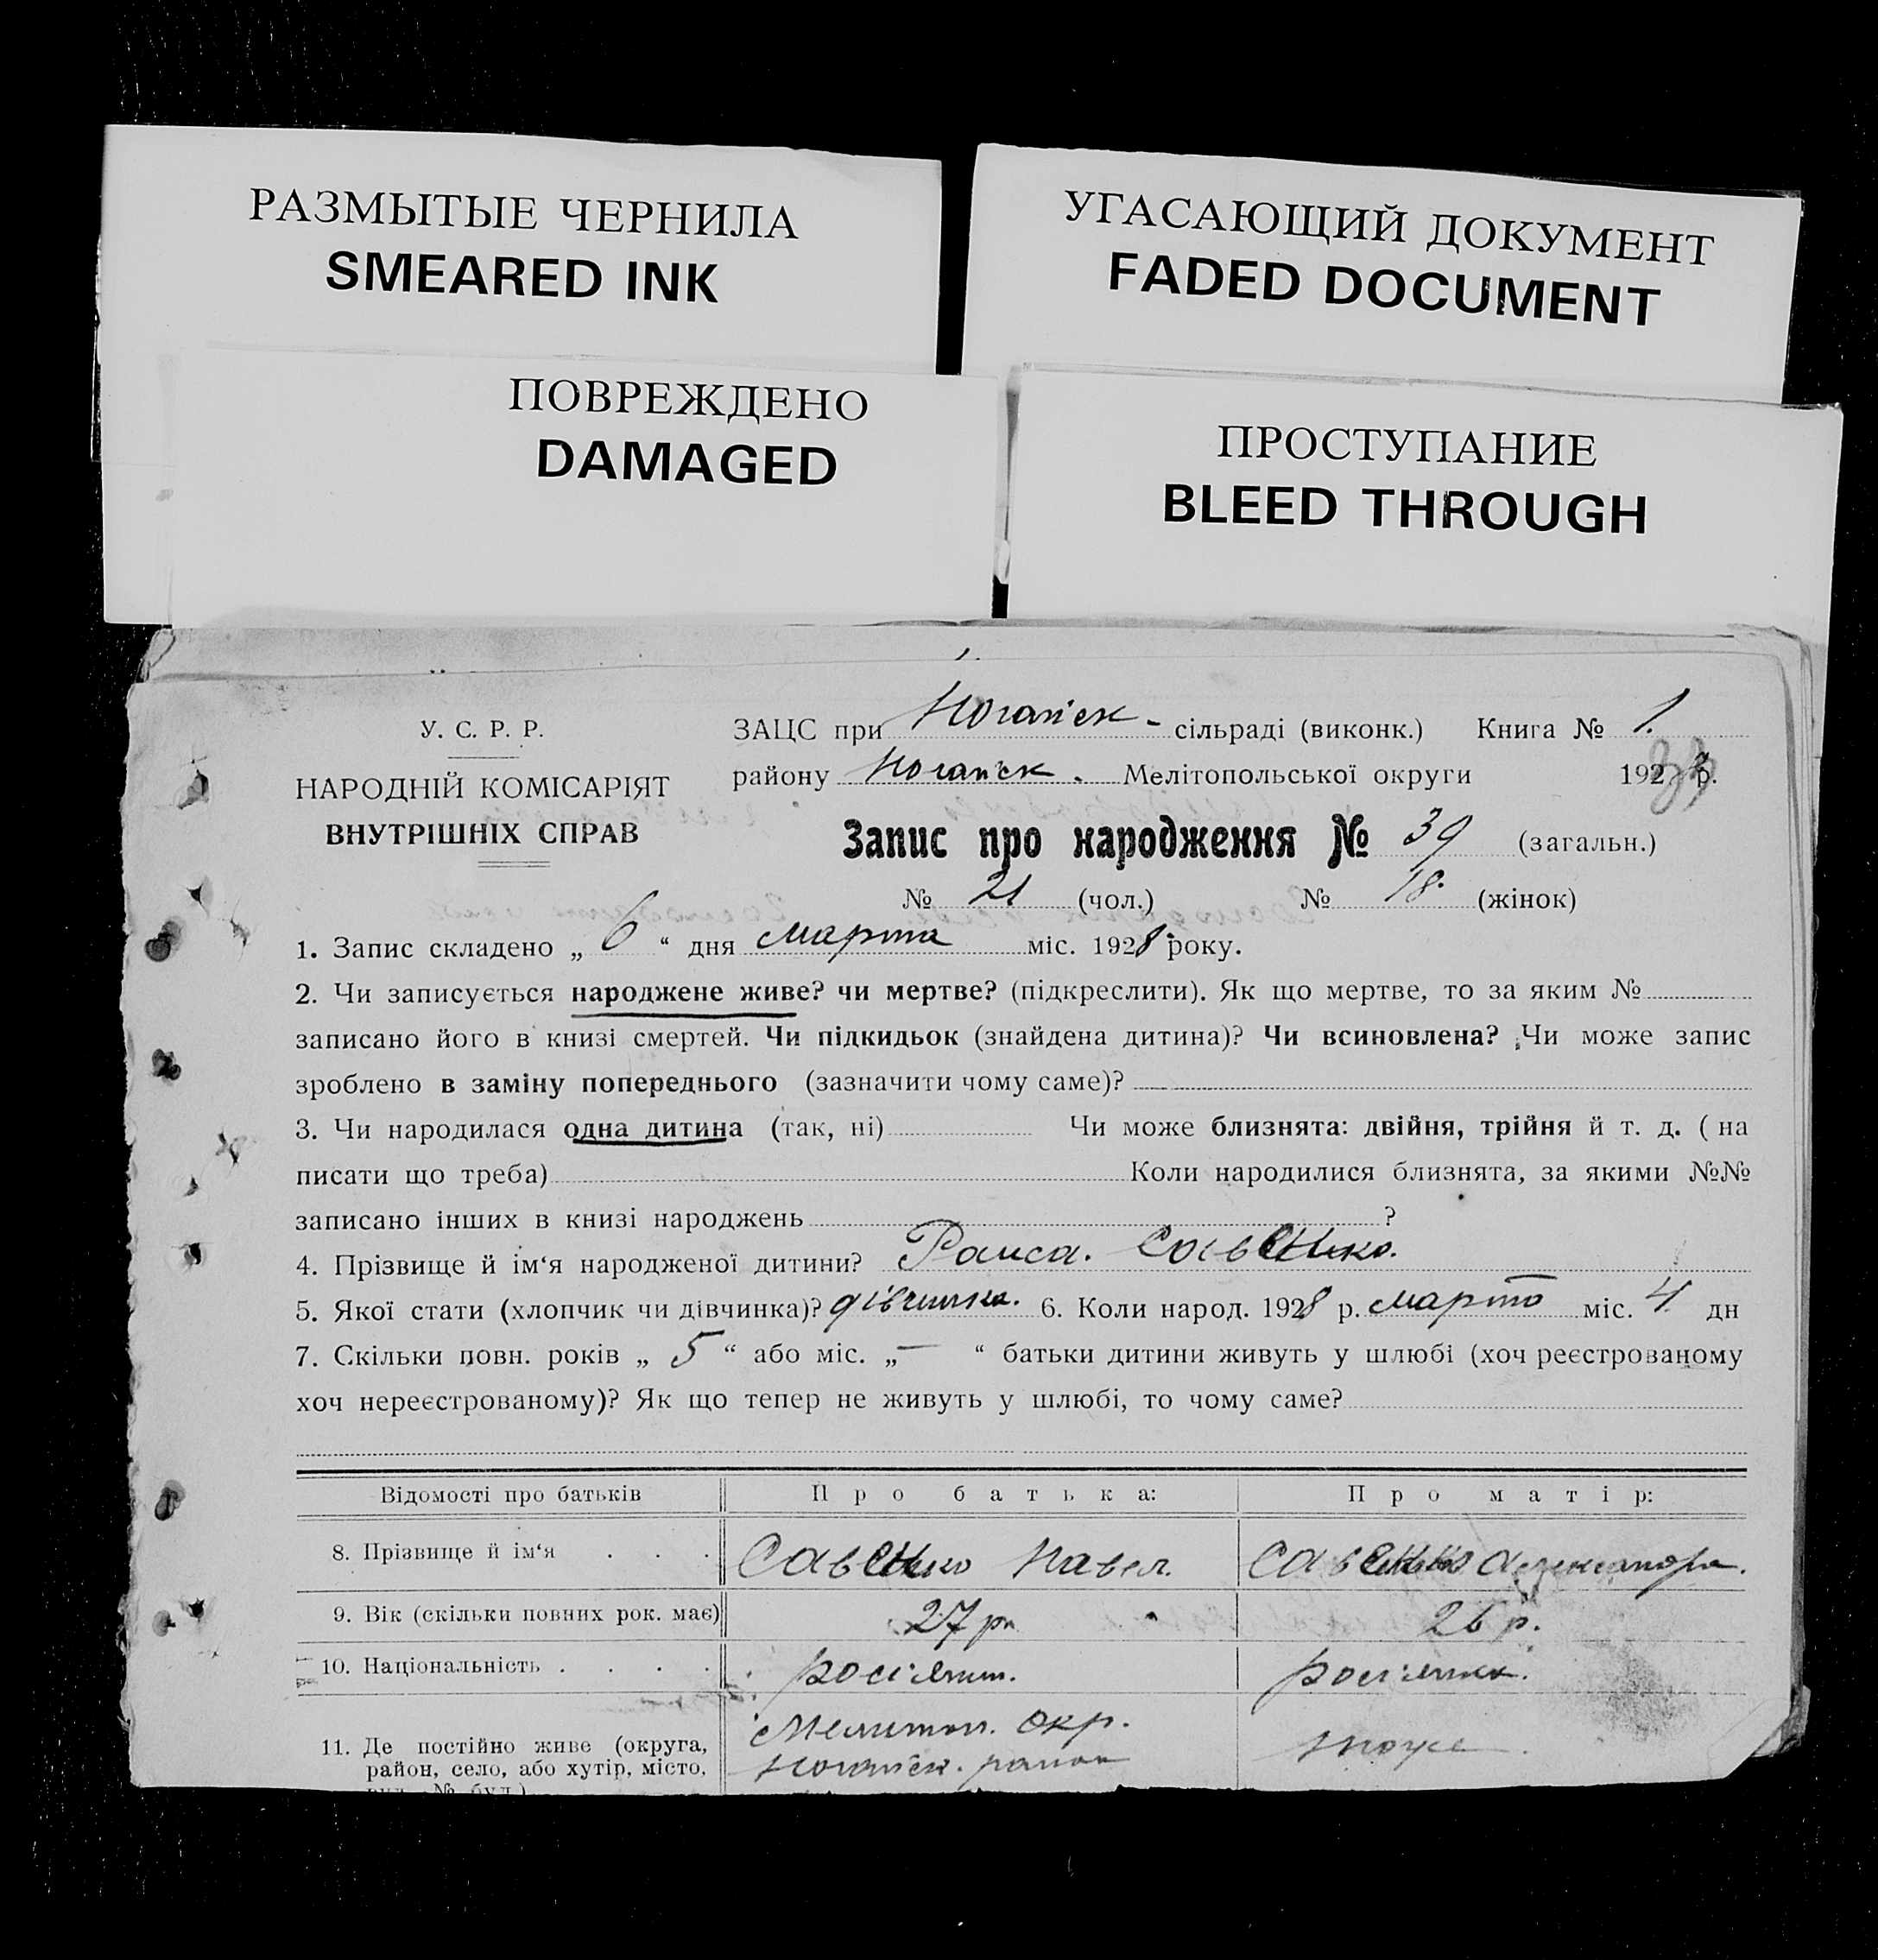 РАЗМЫТЫЕ ЧЕРНИЛА
SMEARED INK
УГАСАЮЩИЙ ДОКУМЕНТ
FADED DOCUMENT
ПОВРЕЖДЕНО
DAMAGED
ПРОСТУПАНИЕ
BLEED THROUGH
У. С. Р. Р.
НАРОДНІЙ КОМІСАРІЯТ
ВНУТРІШНІХ СПРАВ
ЗАЦС при Ногайськ - сільраді (виконк.) Книга № 1.
району Ногайск. Мелітопольської округи 192 р.
Запис про народження № 39 (загальн.)
№ 21 (чол.) № 18. (жінок)
1. Запис складено „ 6 “ дня марта міс. 1928 року.
2. Чи записується народжене живе? чи мертве? (підкреслити). Як що мертве, то за яким №
записано його в книзі смертей. Чи підкидьок (знайдена дитина)? Чи всиновлена? Чи може запис
зроблено в заміну попереднього (зазначити чому саме)?
3. Чи народилася одна дитина (так, ні) Чи може близнята: двійня, трійня й т. д. ( на
писати що треба) Коли народилися близнята, за якими №№
записано інших в книзі народжень ?
4. Прізвище й ім‘я народженої дитини? Раиса. Савенко.
5. Якої стати (хлопчик чи дівчинка)? дівчинка. 6. Коли народ. 1928 р. марта міс. 4. дн
7. Скільки повн. років „ 5 “ або міс. „ — “ батьки дитини живуть у шлюбі (хоч реєстрованому
хоч нереєстрованому)? Як що тепер не живуть у шлюбі, то чому саме?
Відомості про батьків Про батька: Про матір:
8. Прізвище й ім‘я . . . Савенко Павел. Савенко Александра.
9. Вік (скільки повних рок. має) 27 р. 26 р.
10. Національність . . . . росіянин. росіянка.
11. Де постійно живе (округа,
район, село, або хутір, місто,
вул. № буд.)
Мелитоп. окр.
Ногайск. район
тоже